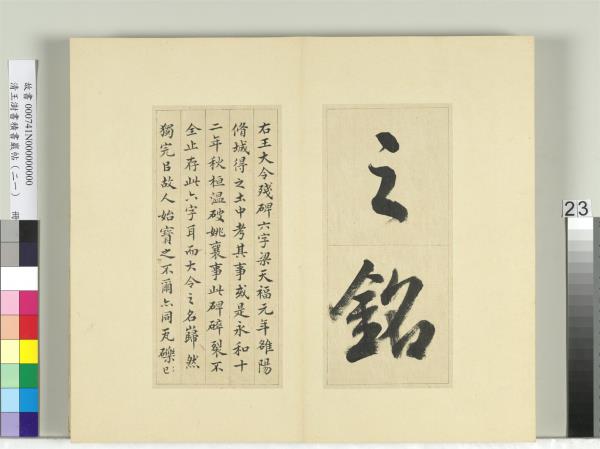 之
銘
右王大令殘碑六字梁天福元年雒陽
脩城得之土中考其事或是永和十
二年秋桓溫破姚襄事此碑碎裂不
全止存此六字耳而大令之名巋然
獨完呂故人始寶之不爾亦同瓦礫已
故書 000741N000000000
清王澍書積書巖帖(二一) 冊
23